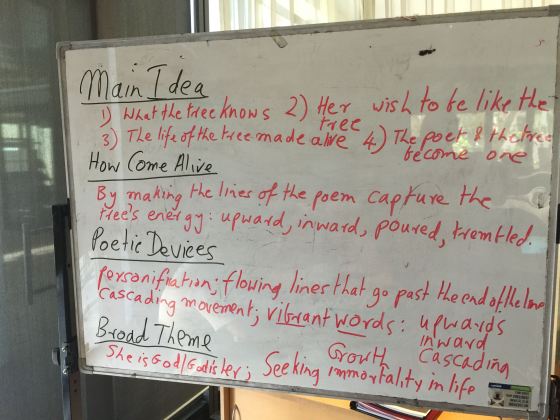 Main Idea
1) What the tree knows 2) Her wish to be like the tree
3) The life of the tree made alive 4) The poet & the tree become one
How Come Alive
By making the lines of the poem capture the
tree's energy: upward, inward, poured, trembled.
Poetic Devices
personification; flowing lines that go past the end of the line
cascading movement; vibrant words: upwards
inward
cascading
Broad Theme
Growth
She is God/God is her; Seeking immortality in life